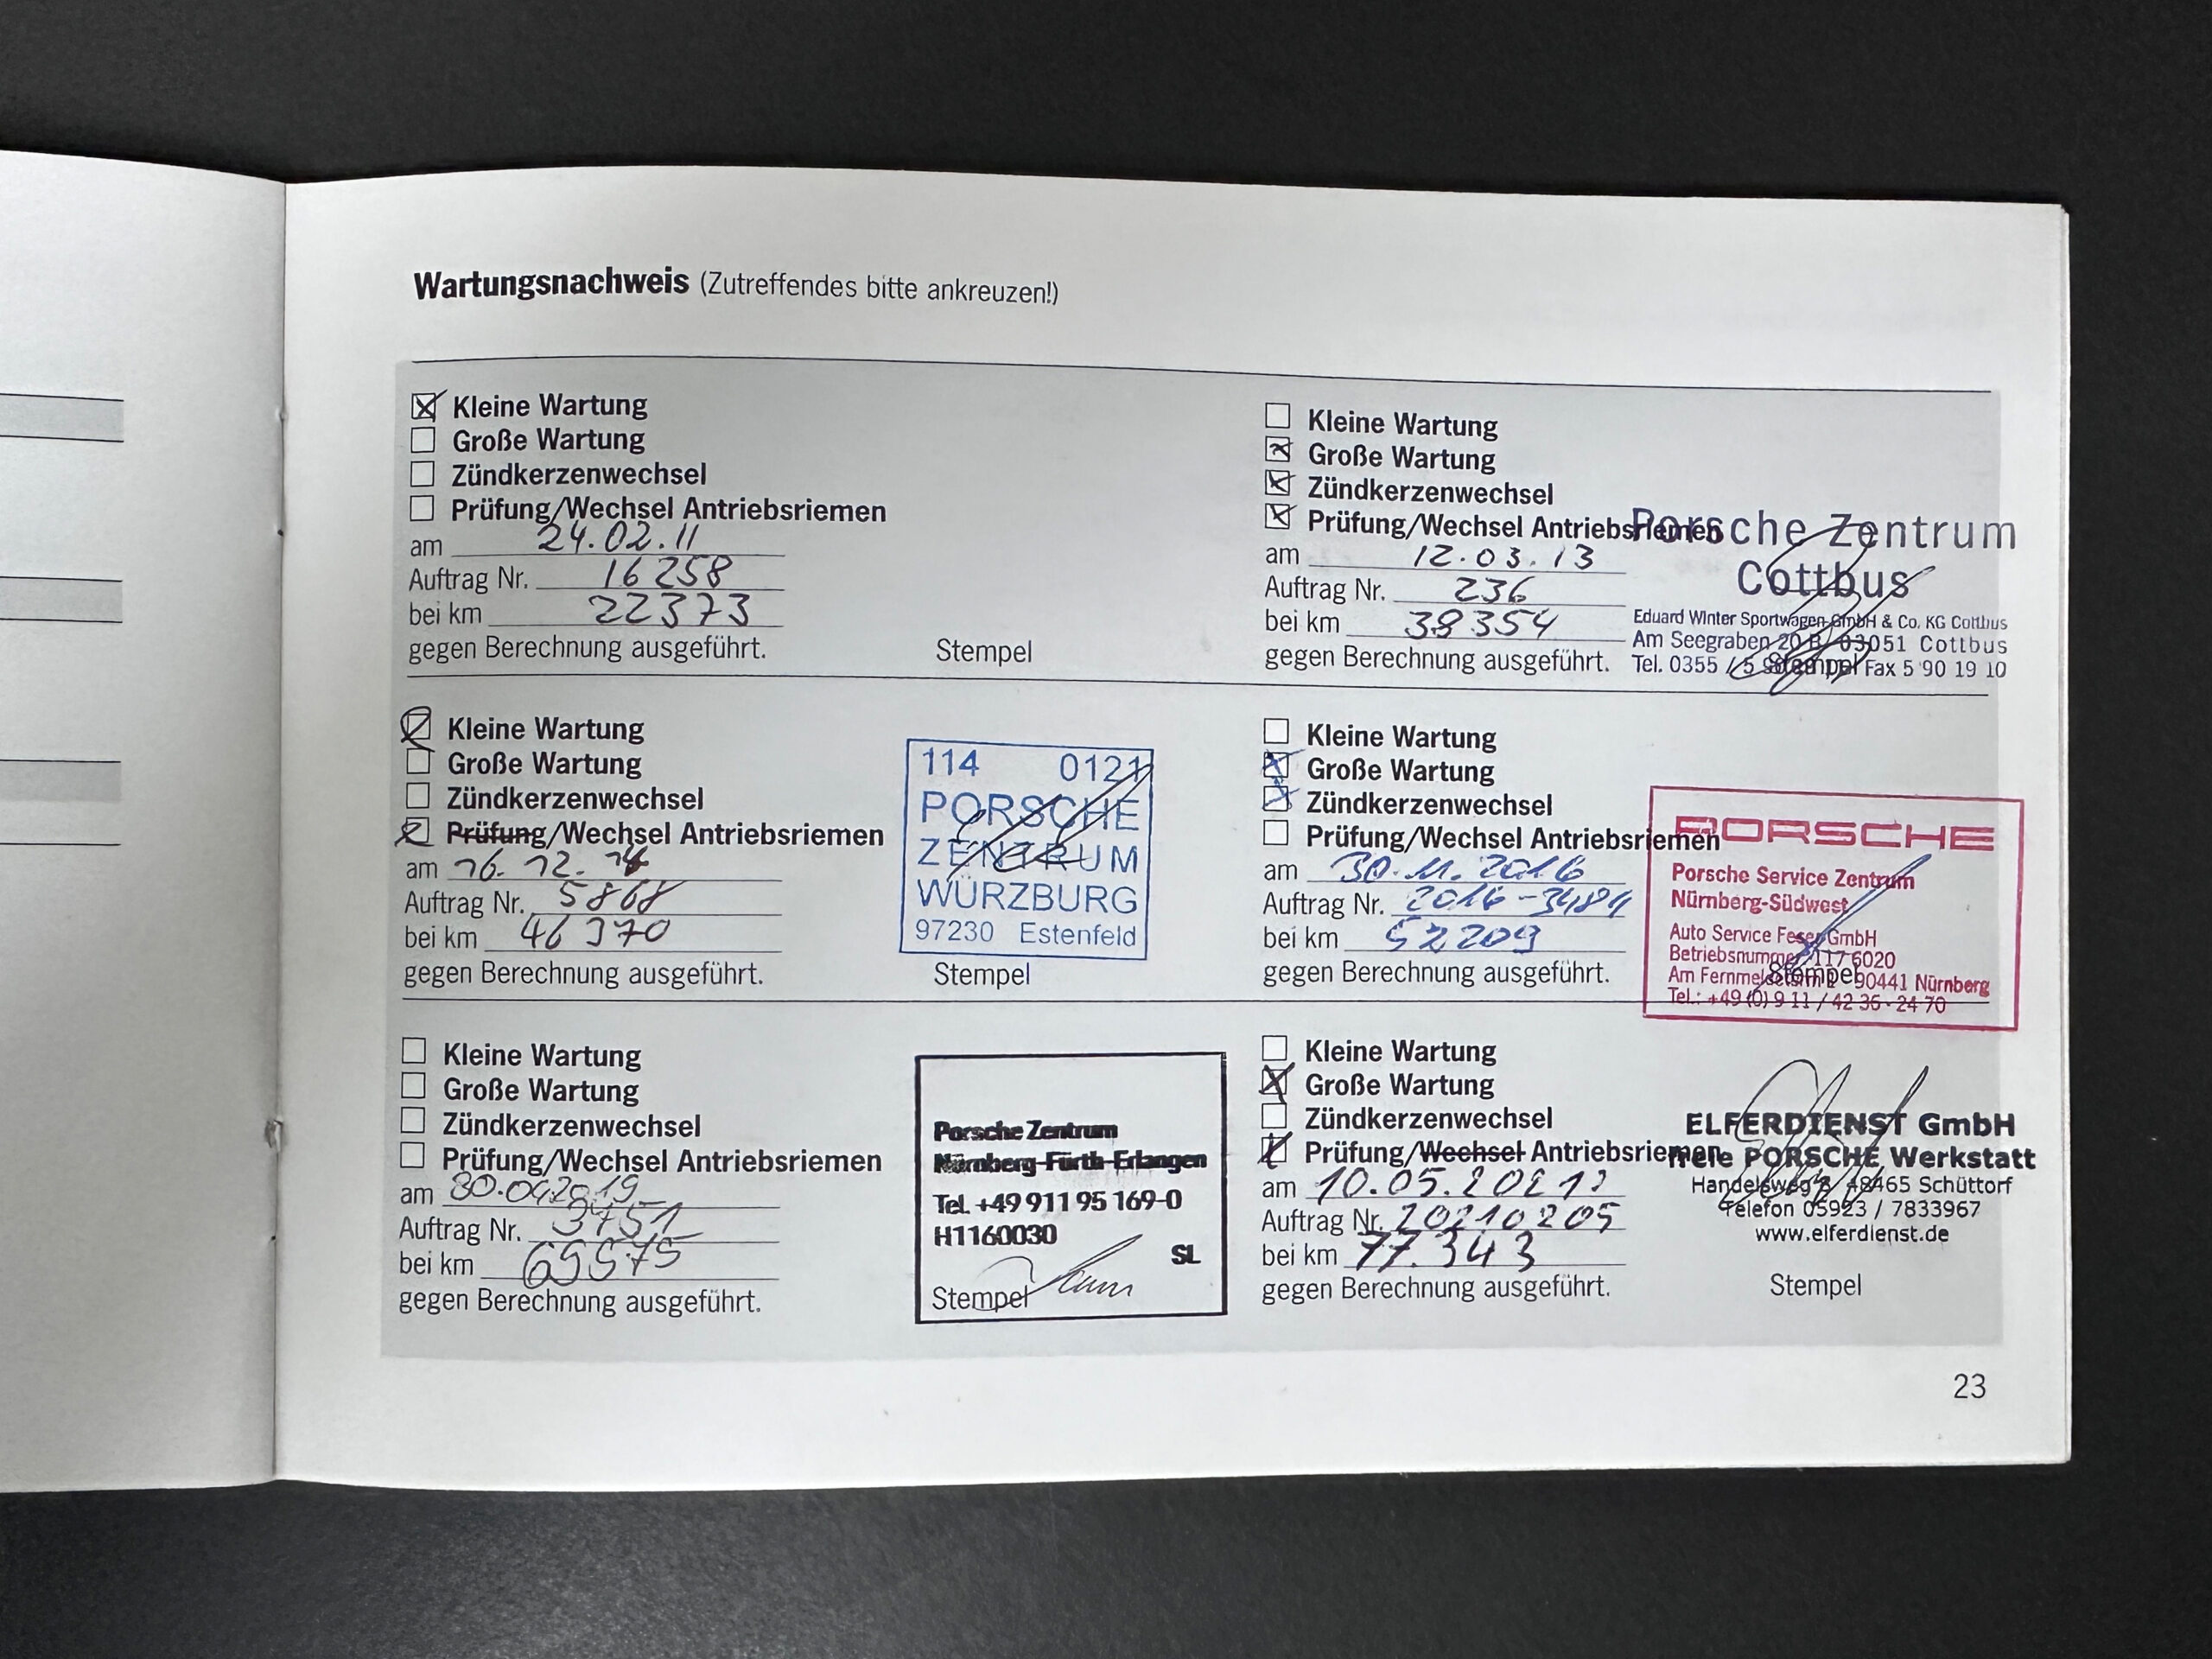 Wartungsnachweis (Zutreffendes bitte ankreuzen!)
Kleine Wartung
Große Wartung
Zündkerzenwechsel
Prüfung/Wechsel Antriebsriemen
am 24.02.11
Auftrag Nr. 16258
bei km 22373
gegen Berechnung ausgeführt.
Stempel
Kleine Wartung
Große Wartung
Zündkerzenwechsel
Prüfung/Wechsel Antriebsriemen
am 12.03.13
Auftrag Nr. 236
bei km 38354
gegen Berechnung ausgeführt.
Porsche Zentrum
Cottbus
Eduard Winter Sportwagen GmbH & Co. KG Cottbus
Am Seegraben 20 B, 03051 Cottbus
Tel. 0355 / 5 Fax 5 90 19 10
Stempel
Kleine Wartung
Große Wartung
Zündkerzenwechsel
Prüfung/Wechsel Antriebsriemen
am 16.12.14
Auftrag Nr. 5868
bei km 46370
gegen Berechnung ausgeführt.
114 0121
PORSCHE
ZENTRUM
WÜRZBURG
97230 Estenfeld
Stempel
Kleine Wartung
Große Wartung
Zündkerzenwechsel
Prüfung/Wechsel Antriebsriemen
am 30.11.2016
Auftrag Nr. 2016-3484
bei km 52209
gegen Berechnung ausgeführt.
PORSCHE
Porsche Service Zentrum
Nürnberg-Südwest
Auto Service Feser GmbH
Betriebsnummer 117 6020
Am 90441 Nürnberg
Tel.: +49 (0) 9 11 / 42 36 - 24 70
Stempel
Kleine Wartung
Große Wartung
Zündkerzenwechsel
Prüfung/Wechsel Antriebsriemen
am 30.04.2019
Auftrag Nr. 3751
bei km
gegen Berechnung ausgeführt.
Porsche Zentrum
Nürnberg-Fürth-Erlangen
Tel. +49 911 95 169-0
H1160030
SL
Stempel
Kleine Wartung
Große Wartung
Zündkerzenwechsel
Prüfung/Wechsel Antriebsriemen
am 10.05.2021
Auftrag Nr. 20210205
bei km 77.343
gegen Berechnung ausgeführt.
ELFERDIENST GmbH
freie PORSCHE Werkstatt
Handelsweg 48465 Schüttorf
Telefon 05923 / 7833967
www.elferdienst.de
Stempel
23